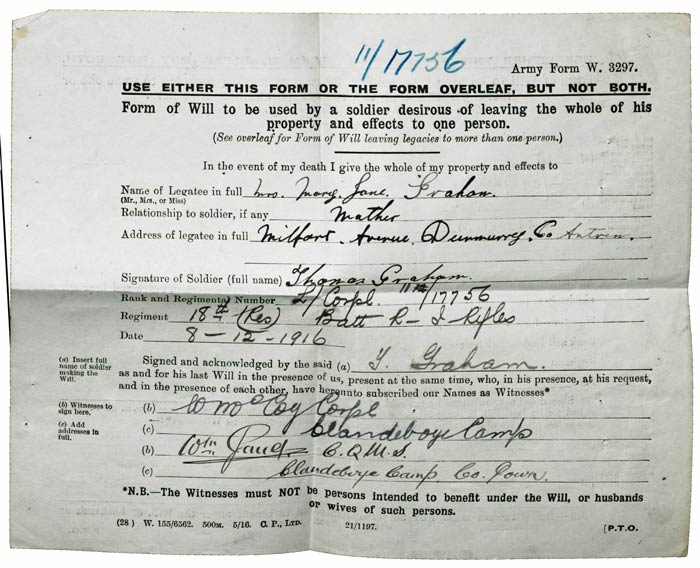 11/17756
Army Form W. 3297.
USE EITHER THIS FORM OR THE FORM OVERLEAF, BUT NOT BOTH.
Form of Will to be used by a soldier desirous of leaving the whole of his
property and effects to one person.
(See overleaf for Form of Will leaving legacies to more than one person.)
In the event of my death I give the whole of my property and effects to
Name of Legatee in full Mrs. Mary Jane. Graham.
(Mr., Mrs., or Miss)
Relationship to soldier, if any Mother
Address of legatee in full Milfort. Avenue. Dunmurry. Co Antrim.
Signature of Soldier (full name) Thomas Graham.
Rank and Regimental Number L/Corpl. 11th/17756
Regiment 18th (Res) Batt R-I Rifles
Date 8-12-1916
(a) Insert full
name of soldier
making the
Will.
Signed and acknowledged by the said (a) T. Graham.
as and for his last Will in the presence of us, present at the same time, who, in his presence, at his request,
and in the presence of each other, have hereunto subscribed our Names as Witnesses*
(b) Witnesses to
sign here.
(c) Add
addresses in
full.
(b) W McCoy Corpl
(c) Clandeboye Camp
(b) Wm C.Q.M.S.
(c) Clandeboye Camp Co. Down.
*N.B.—The Witnesses must NOT be persons intended to benefit under the Will, or husbands
or wives of such persons.
(28) W. 155/6562. 500M. 5/16. C. P., LTD. 21/1197. [P.T.O.